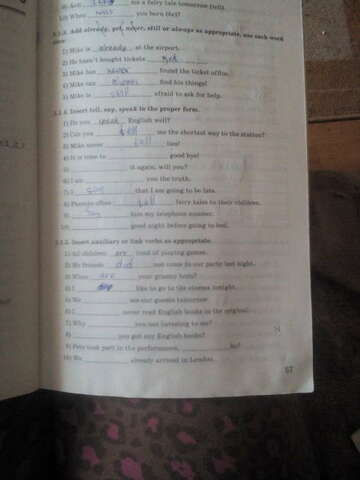 me a fairy tale tomorrow (tell).
10) When was you born (be)?
Add already, yet, never, still or always as appropriate, use each word
1) Mike is already at the airport.
2) He hasn't bought tickets yet
3) Mike has never found the ticket office.
4) Mike can find his things!
5) Mike is still afraid to ask for help.
Insert tell, say, speak in the proper form.
1) Do you speak English well?
2) Can you tell me the shortest way to the station?
3) Mike never tell lies!
4) It is time to good bye!
5) it again, will you?
6) I am you the truth.
7) I say that I am going to be late.
8) Parents often tell fairy tales to their children.
9) Say him my telephone number.
10) good night before going to bed.
Insert auxiliary or link verbs as appropriate.
1) All children are fond of playing games.
2) My friends did not come to our party last night.
3) When are your granny born?
4) I like to go to the cinema tonight.
5) We see our guests tomorrow
6) I never read English books in the original.
7) Why you not listening to me?
8) you got any English books?
9) Pete took part in the performance, he?
10) We already arrived in London.
57